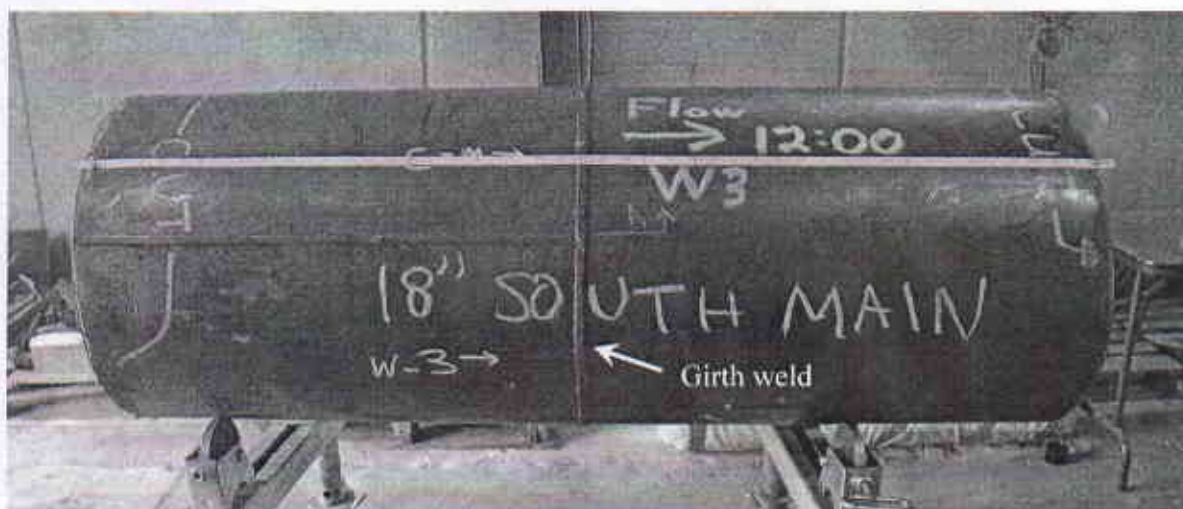 Flow
12:00
W3
18" SOUTH MAIN
W-3→
Girth weld